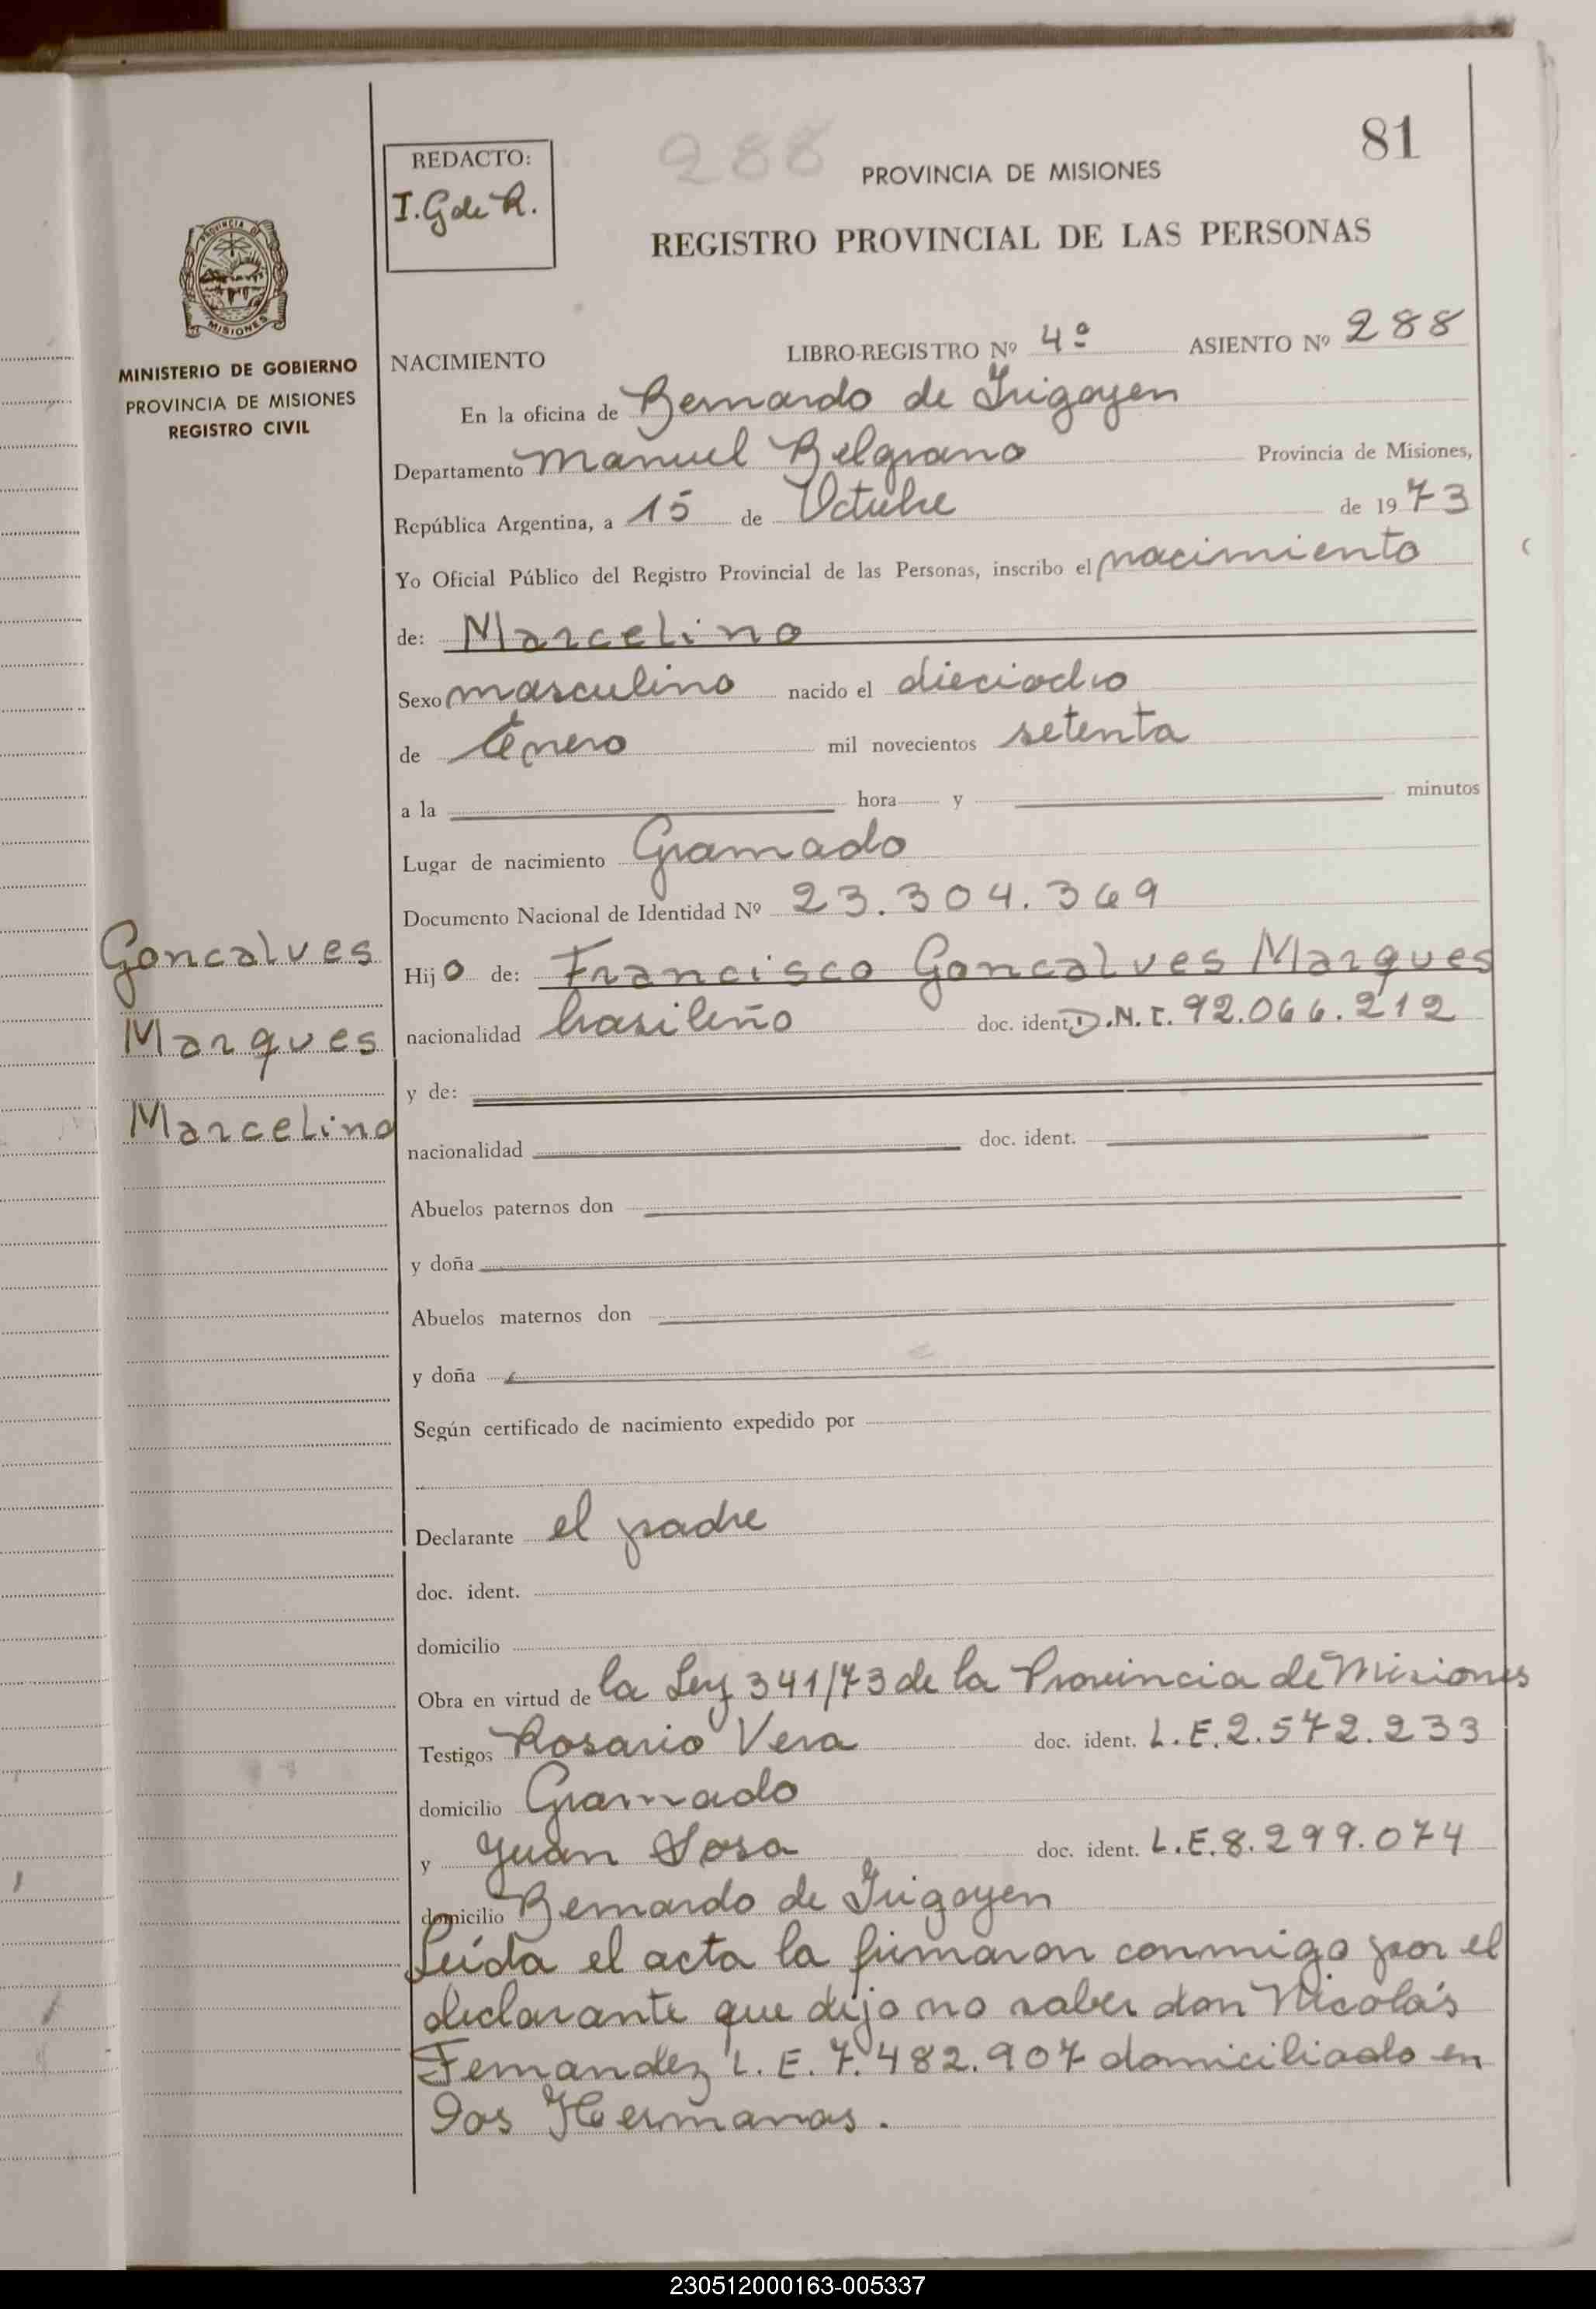 81
288
REDACTO:
I. G de R.
PROVINCIA DE MISIONES
REGISTRO PROVINCIAL DE LAS PERSONAS
PROVINCIA DE
MISIONES
MINISTERIO DE GOBIERNO
PROVINCIA DE MISIONES
REGISTRO CIVIL
NACIMIENTO LIBRO-REGISTRO Nº 4º ASIENTO Nº 288
En la oficina de Bernardo de Irigoyen
Departamento Manuel Belgrano Provincia de Misiones,
República Argentina, a 15 de Octubre de 1973
Yo Oficial Público del Registro Provincial de las Personas, inscribo el nacimiento
de: Marcelino
Sexo masculino nacido el dieciocho
de Enero mil novecientos setenta
a la hora y minutos
Lugar de nacimiento Gramado
Documento Nacional de Identidad Nº 23.304.369
Goncalves
Marques
Marcelino
Hijo de: Francisco Goncalves Marques
nacionalidad brasileño doc. ident. D.N.I. 92.066.212
y de:
nacionalidad doc. ident.
Abuelos paternos don
y doña
Abuelos maternos don
y doña
Según certificado de nacimiento expedido por
Declarante el padre
doc. ident.
domicilio
Obra en virtud de la Ley 341/73 de la Provincia de Misiones
Testigos Rosario Vera doc. ident. L.E. 2.572.233
domicilio Gramado
y Juan Sosa doc. ident. L.E. 8.299.074
domicilio Bernardo de Irigoyen
Leída el acta la firmaron conmigo por el
declarante que dijo no saber don Nicolás
Fernandez L.E. 7.482.907 domiciliado en
Dos Hermanas.
230512000163-005337